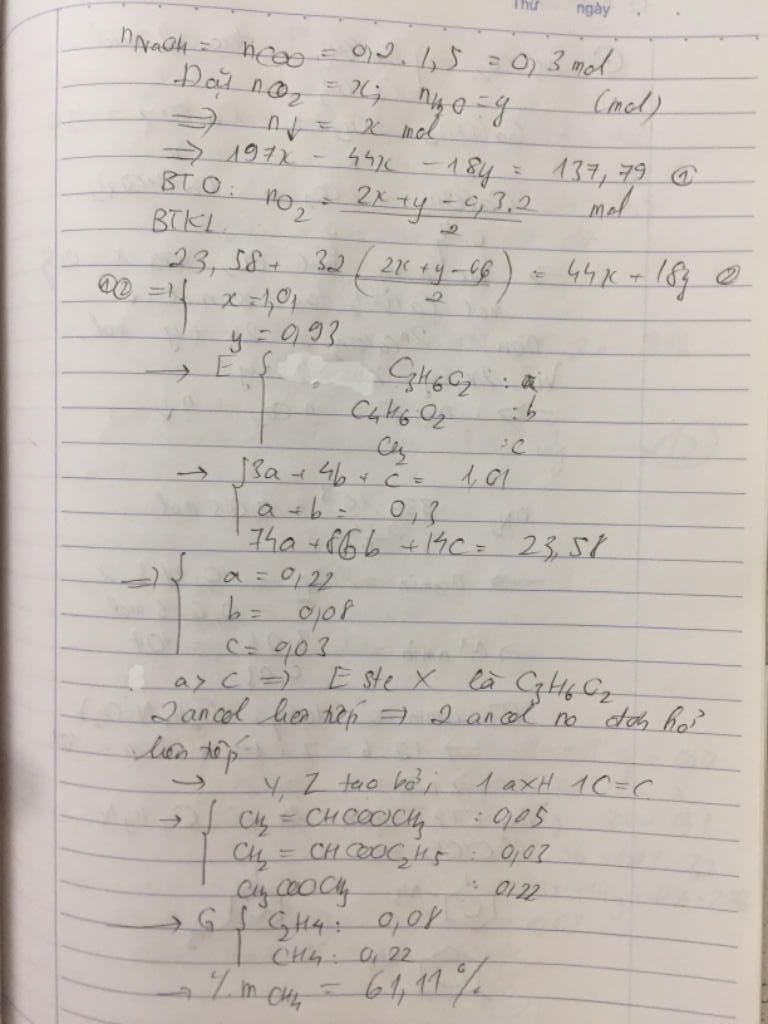 Thứ ngày . .
nNaOH = nCOO = 0,2 . 1,5 = 0,3 mol
Đặt nCO2 = x; nH2O = y (mol)
=> n↓ = x mol
=> 197x - 44x - 18y = 137,79 ①
BTO: nO2 = (2x + y - 0,3.2)/2 mol
BTKL
23,58 + 32 ((2x + y - 0,6)/2) = 44x + 18y ②
①② => { x = 1,01
y = 0,93
→ E { C3H6O2 : a
C4H6O2 : b
CH2 : c
→ { 3a + 4b + c = 1,01
a + b = 0,3
74a + 86b + 14c = 23,58
=> { a = 0,22
b = 0,08
c = 0,03
a > c => Este X là C3H6O2
2 ancol liên tiếp => 2 ancol no đơn hở
liên tiếp
→ Y, Z tạo bởi 1 axit 1C=C
→ { CH2 = CHCOOCH3 : 0,05
CH2 = CHCOOC2H5 : 0,03
CH3COOCH3 : 0,22
→ G { C2H4 : 0,08
CH4 : 0,22
→ % mCH4 = 61,11%